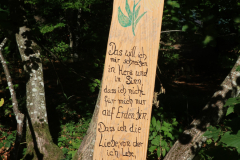 Das will ich
mir schreiben
in Herz und
in Sinn,
dass ich nicht
für mich nur
auf Erden bin.
Dass ich die
Liebe, von der
ich lebe,